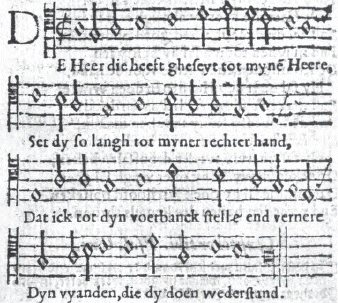 DE Heer die heeft gheseyt tot myne Heere,
Set dy so langh tot myner rechter hand,
Dat ick tot dyn voetbanck stelle end vernere
Dyn vyanden, die dy doen wederstand.